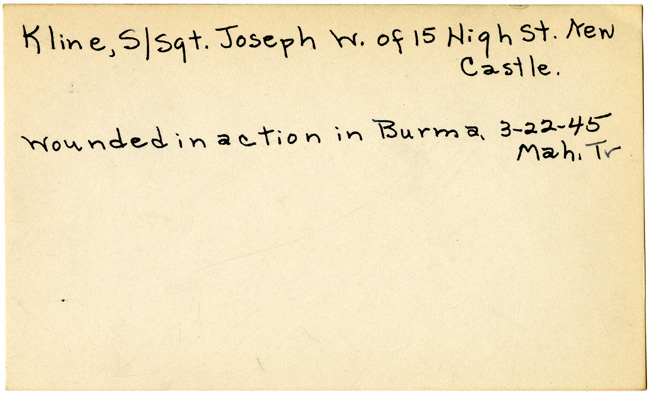 Kline, S/Sgt. Joseph W. of 15 High St. New
Castle.
wounded in action in Burma, 3-22-45
Mah. Tr